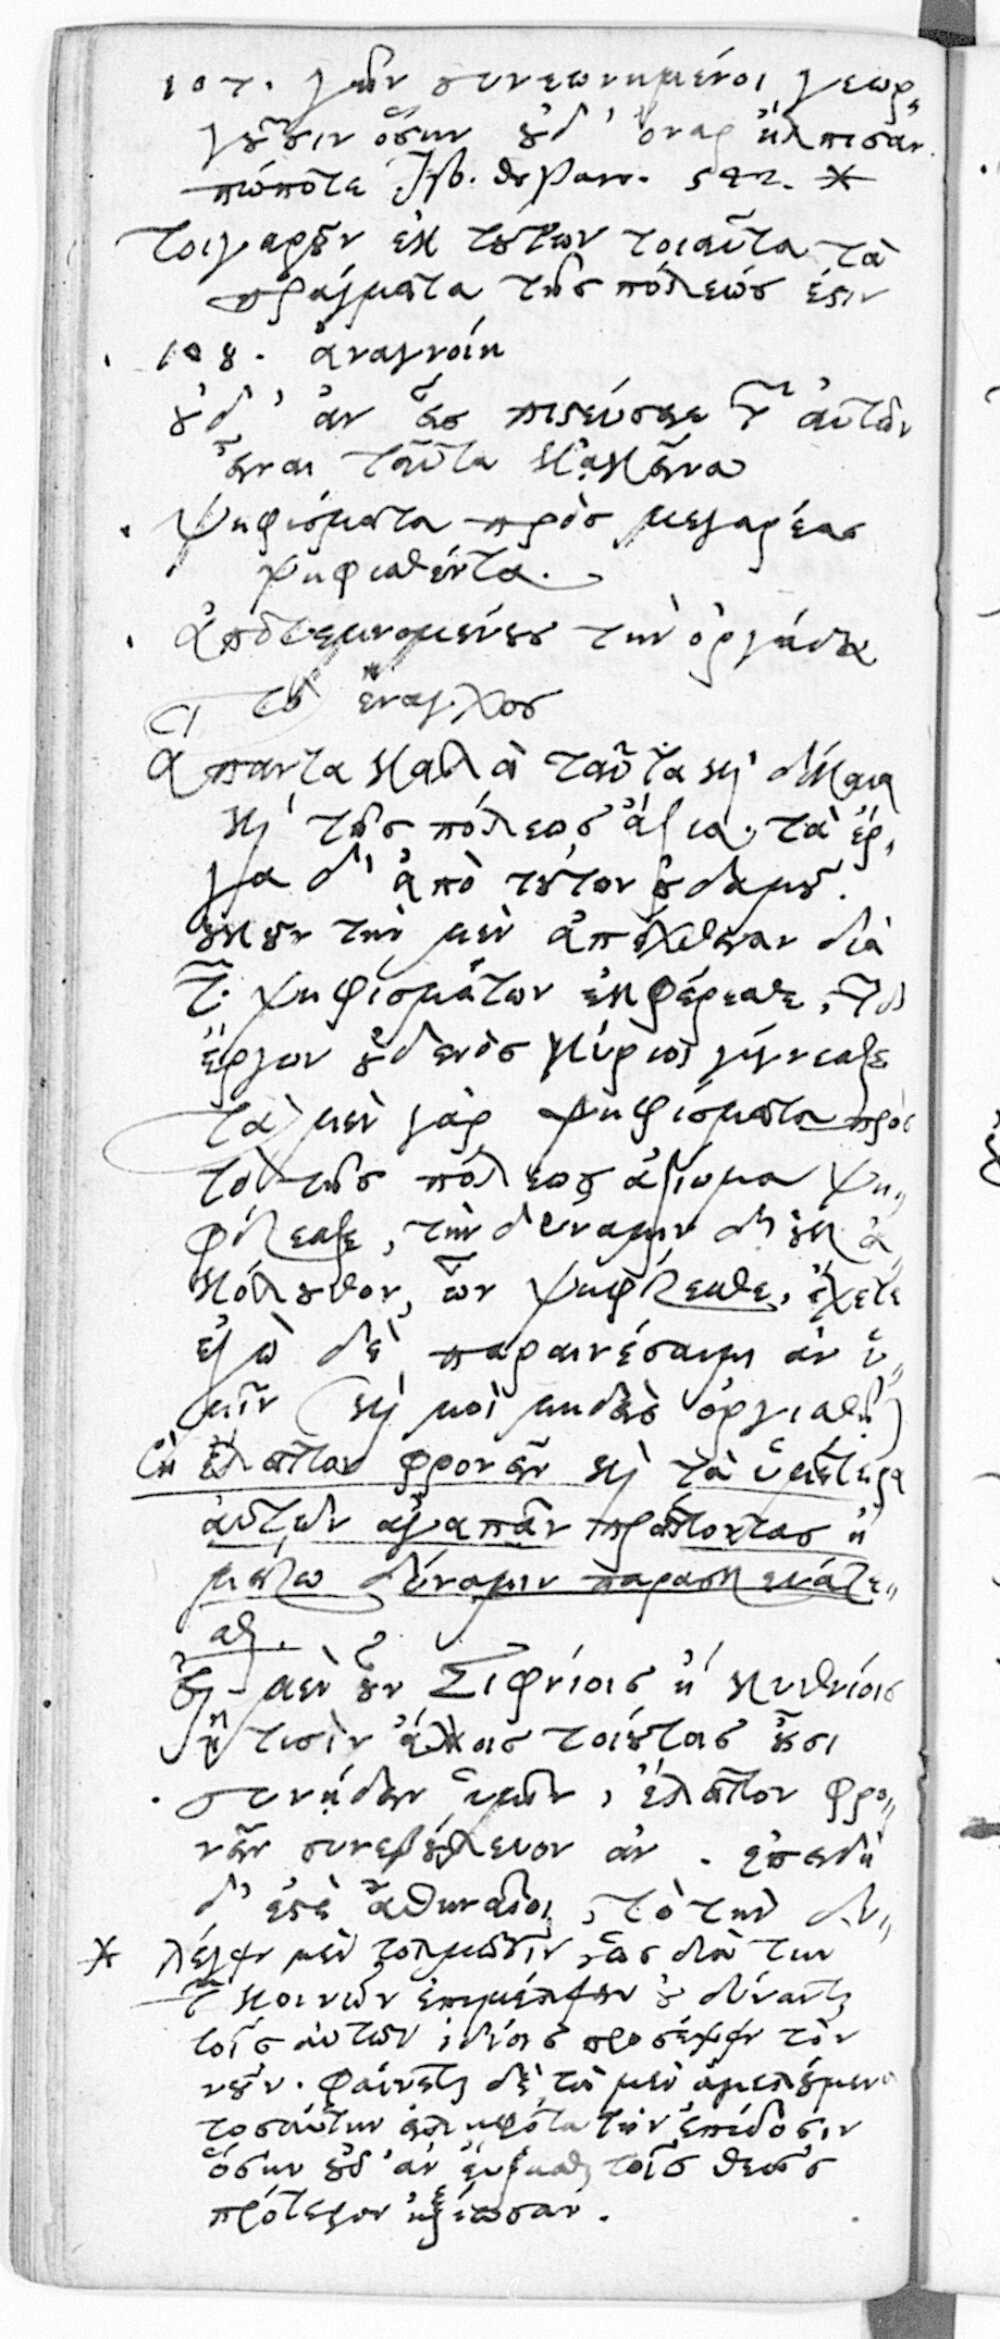 107. γῆν συνεωνημένοι γεωρ,
γοῦσιν ὅσην οὐδ' ὄναρ ἤλπισαν
πώποτε
τοιγαροῦν ἐκ τούτων τοιαῦτα τὰ
πράγματα τῆς πόλεώς ἐστιν
108. ἀναγνοίη
οὐδ' ἂν εἷς πιστεύσειε τῶν αὐτῶν
εἶναι ταῦτα κἀκεῖνα
ψηφίσματα πρὸς μεγαρέας
ψηφισθέντα.
ἀποτεμνομένους τὴν ὀργάδα
ἔναγχος
ἅπαντα καλὰ ταῦτα καὶ δίκαια
καὶ τῆς πόλεως ἄξια. τὰ ἔρ,
γα δ' ἀπὸ τούτων οὐδαμοῦ.
οὐκοῦν τὴν μὲν ἀπέχθειαν διὰ
τῶν ψηφισμάτων ἐκφέρεσθε, τῶν δ'
ἔργων οὐδενὸς κύριοι γίγνεσθε
τὰ μὲν γὰρ ψηφίσματα πρὸς
τὸ τῆς πόλεως ἀξίωμα ψη,,
φίζεσθε, τὴν δύναμιν δ' οὐκ ἀ
κόλουθον, ὧν ψηφίζεσθε, ἔχετε
ἐγὼ δὲ παραινέσαιμι ἂν ὑ,,
μῖν (καί μοι μηδεὶς ὀργισθῇ)
ἢ ἔλαττον φρονεῖν καὶ τὰ ὑμέτερα
αὐτῶν ἀγαπᾶν πράττοντας ἢ
μείζω δύναμιν παρασκευάζε,,
σθαι.
εἰ μὲν οὖν Σιφνίοις ἢ κυθνίοις
ἢ τισὶν ἄλλοις τοιούτοις οὖσι
συνῄδειν ὑμῖν, ἔλαττον φρο,,
νεῖν συνεβούλευον ἄν. ἐπειδὴ
δ' ἐστὲ ἀθηναῖοι, τὸ τὴν δύ,,
* λέγειν μὲν τολμῶσιν, ὡς διὰ τὴν
τῶν κοινῶν ἐπιμέλειαν οὐ δύνανται
τοῖς αὐτῶν ἰδίοις προσέχειν τὸν
νοῦν. φαίνεται δὲ τὰ μὲν ἀμελούμενα
τοσαύτην εἰληφότα τὴν ἐπίδοσιν
ὅσην οὐδ' ἂν εὔξασθαι τοῖς θεοῖς
πρότερον ἠξίωσαν.